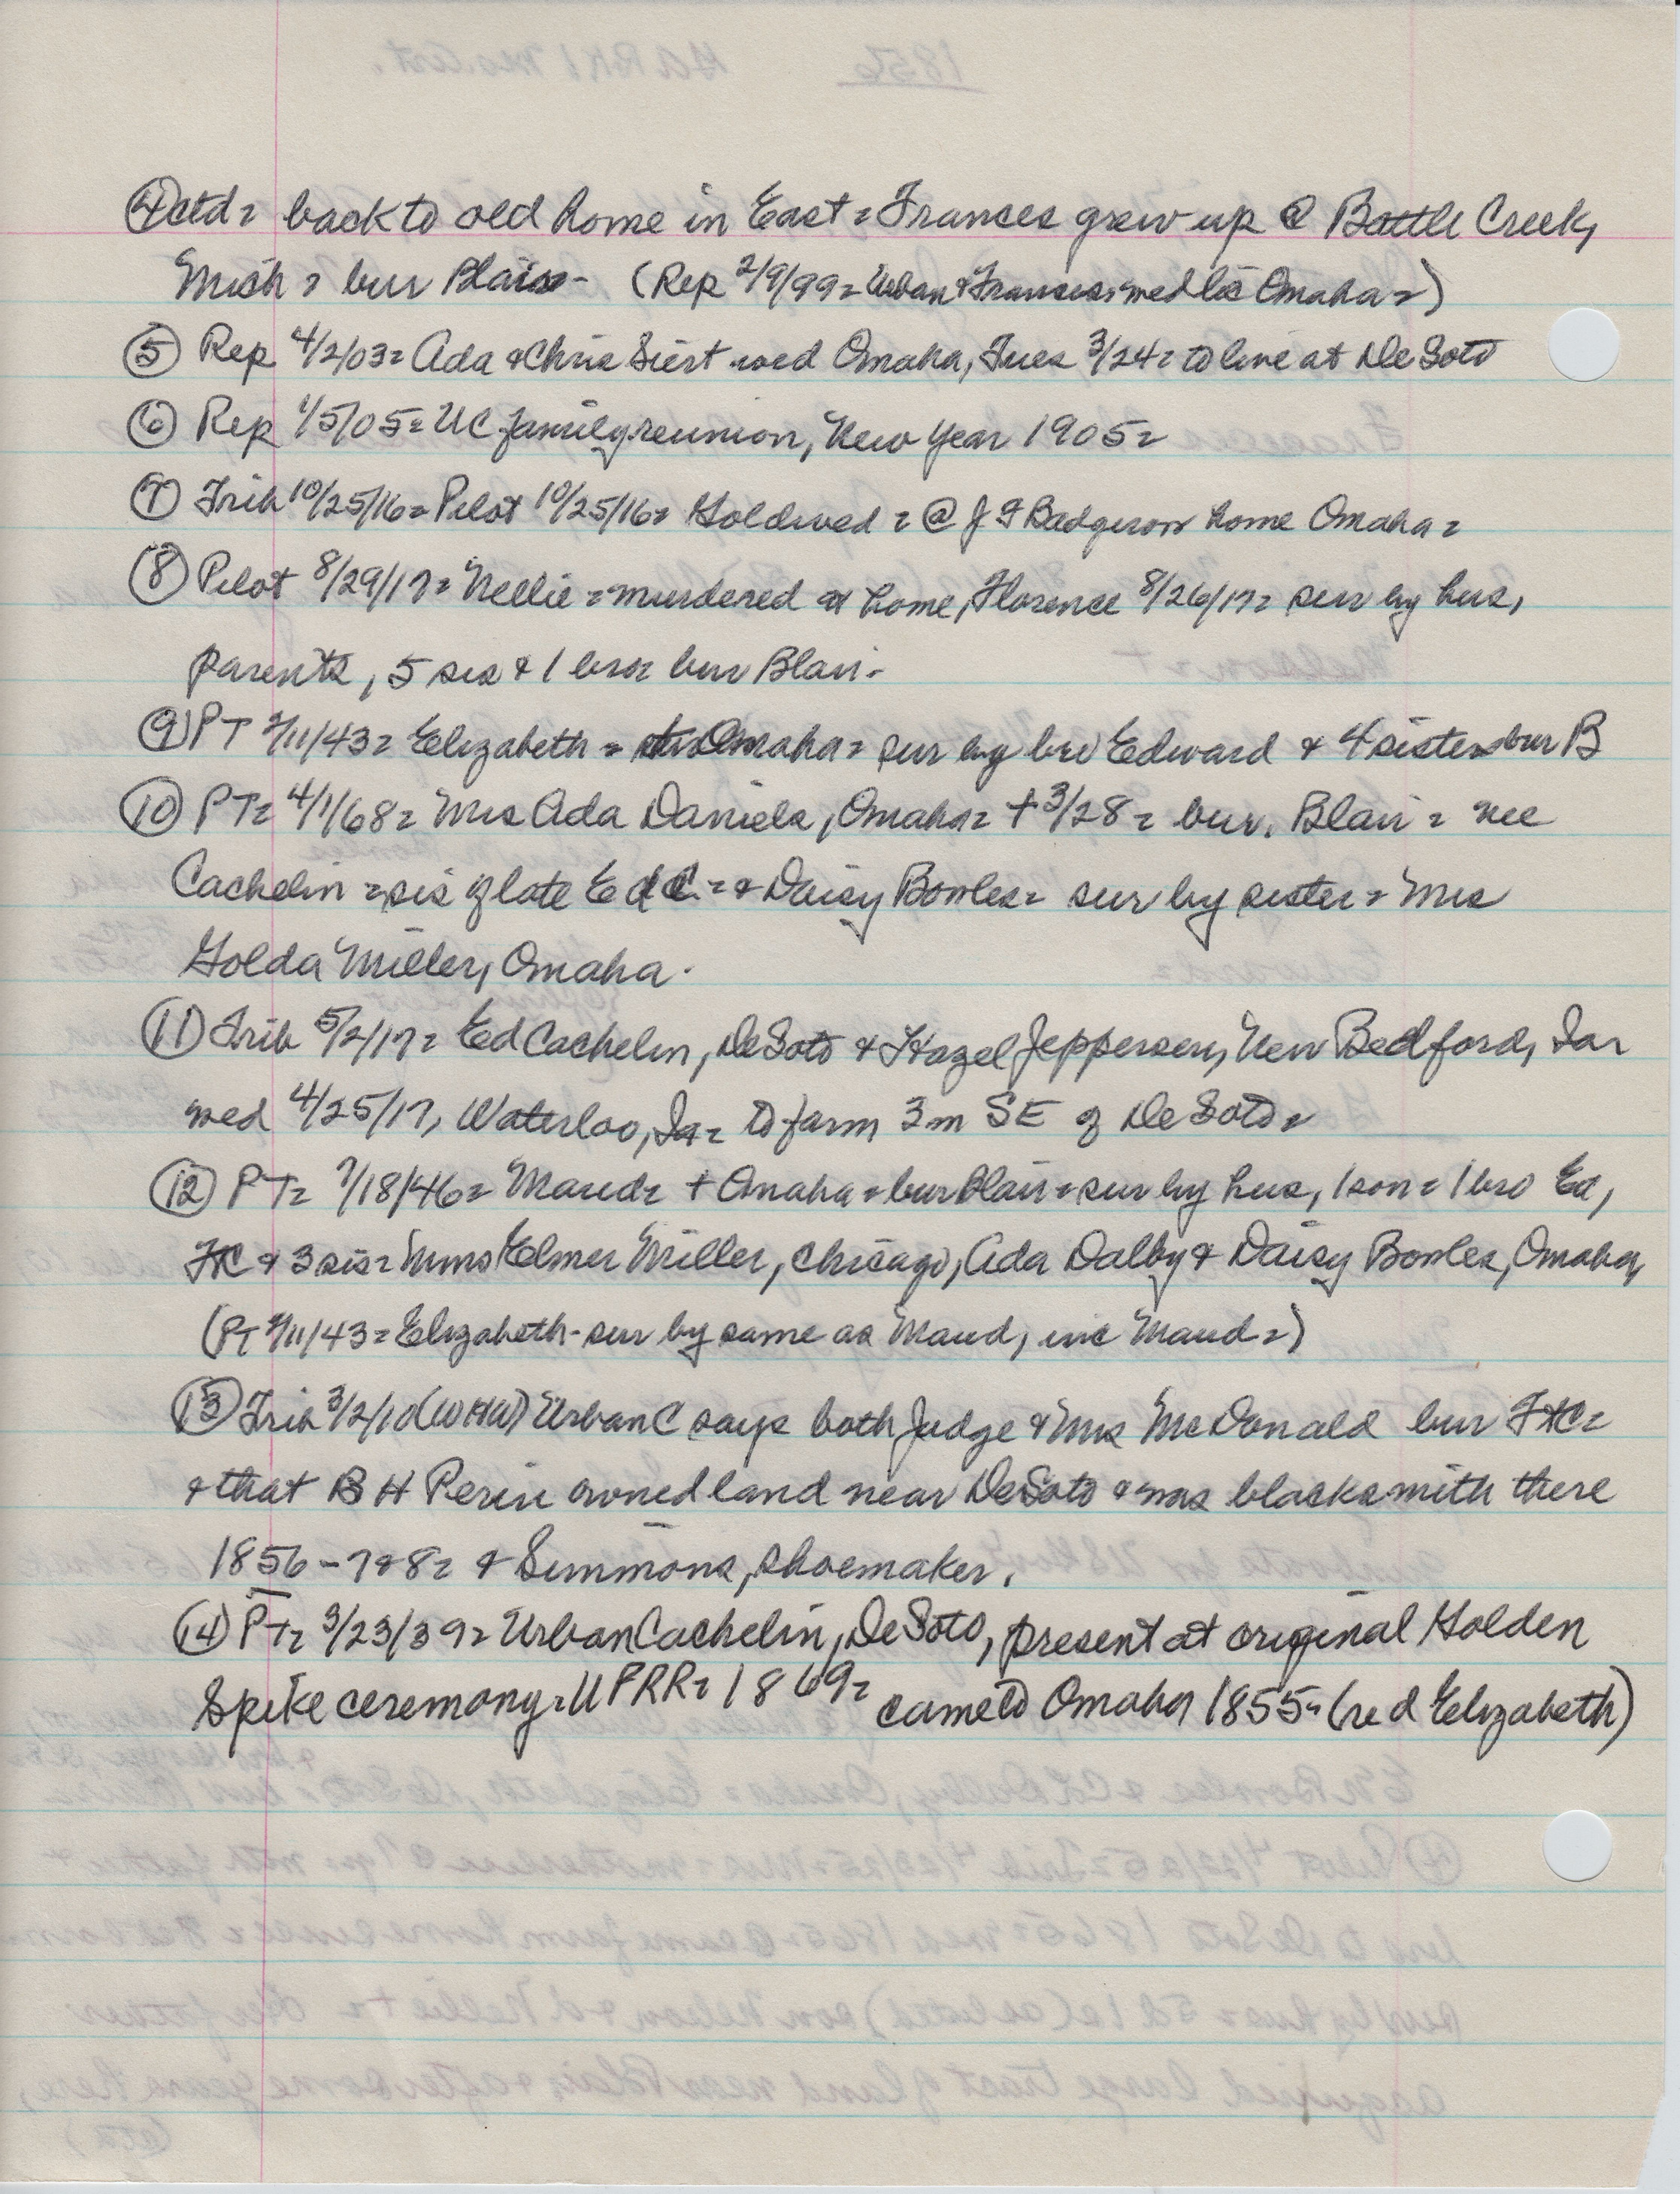 ④ctd= back to old home in East= Frances grew up @ Battle Creek,
Mich= bur Blair- (Rep 2/9/99= Urban & Frances, wed lic Omaha=)
⑤ Rep 4/2/03= Ada & Chris Siert wed Omaha, Tues 3/24= to live at DeSoto
⑥ Rep 1/5/05= UC family reunion, New Year 1905=
⑦ Trib 10/25/16= Pilot 10/25/16= Gold wed= @ J F Badgerow home Omaha=
⑧ Pilot 8/29/17= Nellie= murdered at home, Florence 8/26/17= sur by hus,
parents, 5 sis & 1 bro= bur Blair-
⑨ PT 2/11/43= Elizabeth= Omaha= sur by bro Edward & 4 sisters bur B
⑩ PT= 4/1/68= Mrs Ada Daniels, Omaha= +3/28= bur. Blair= nee
Cachelin= sis of late Ed C.= & Daisy Bowles= sur by sister= Mrs
Golda Miller, Omaha.
⑪ Trib 5/2/17= Ed Cachelin, DeSoto & Hazel Jeppersen, New Bedford, Ia=
wed 4/25/17, Waterloo, Ia= to farm 3m SE of DeSoto=
⑫ PT= 7/18/46= Maud= + Omaha= bur Blair= sur by hus, 1 son= 1 bro Ed,
FtC & 3 sis= Mmes Elmer Miller, Chicago, Ada Dalby & Daisy Bowles, Omaha,
(PT 2/11/43= Elizabeth- sur by same as Maud, inc Maud=)
⑬ Trib 3/2/10 (WHW) Urban C says both Judge & Mrs McDonald bur FtC=
& that B H Perin owned land near DeSoto & was blacksmith there
1856-7&8= & Simmons, shoemaker.
⑭ PT= 3/23/39= Urban Cachelin, DeSoto, present at original Golden
Spike ceremony= UPRR= 1869= came to Omaha 1855= (re d Elizabeth)